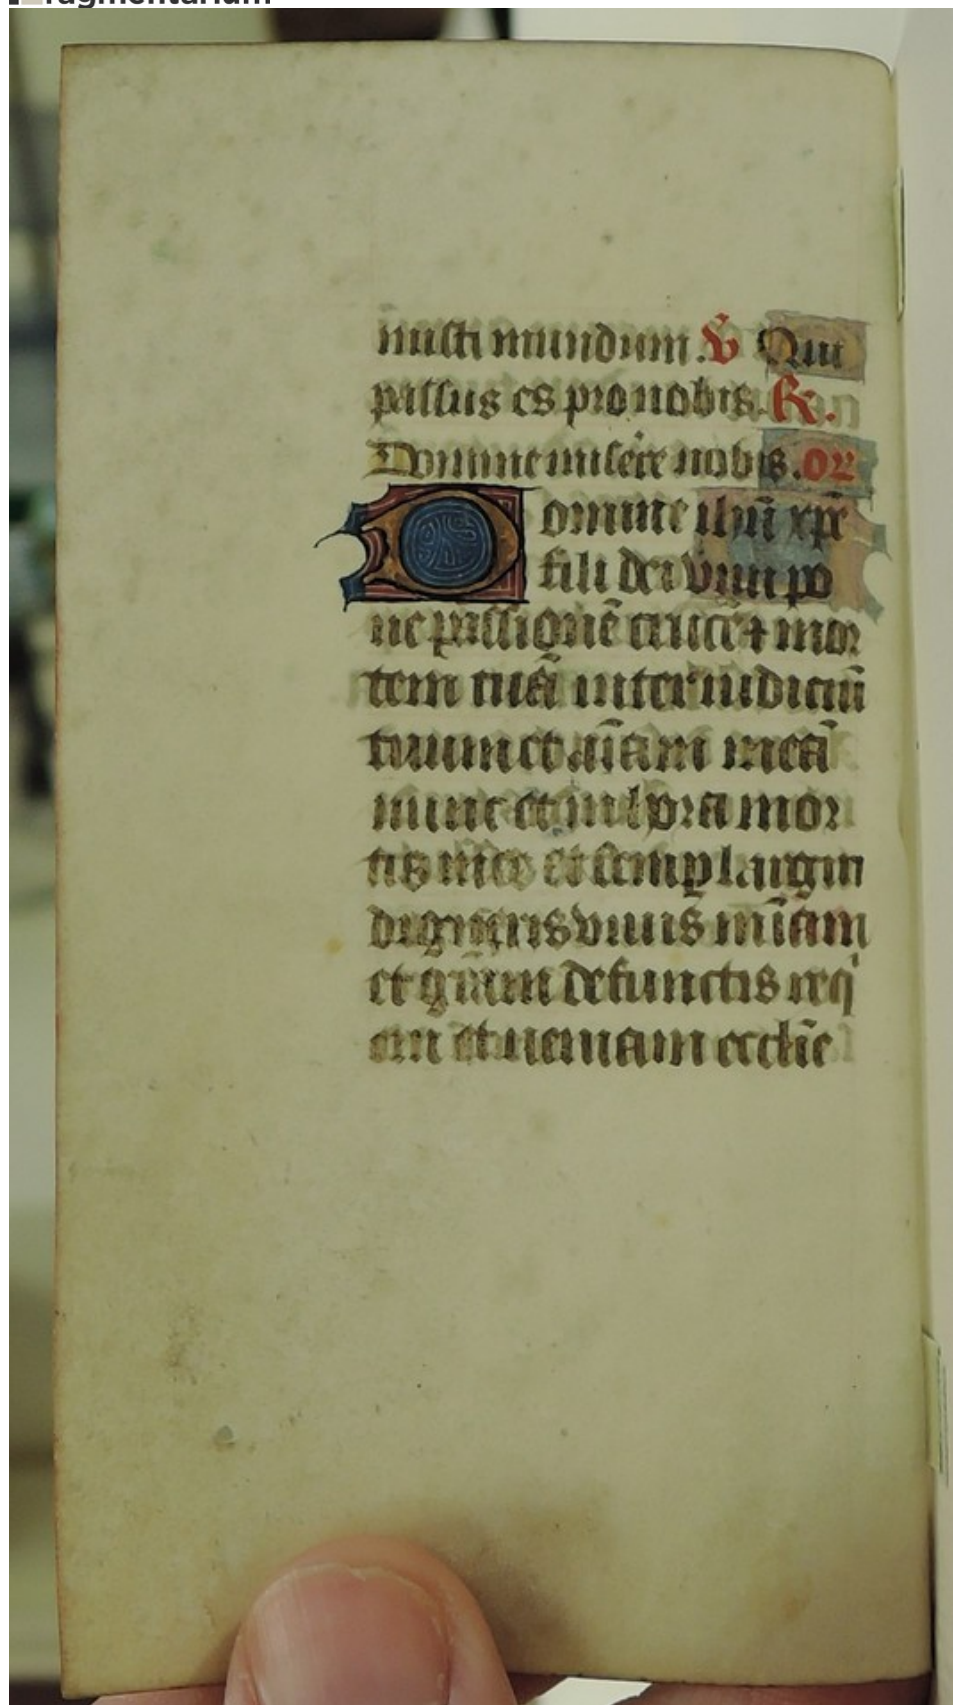 fragmentarium
misti mundum. V Qui
passus es pro nobis. R.
Domine miserē nobis. or
Domine ihū xpē
fili dei viui po
ne passionē crucē ⁊ mor
tem tuā inter iudiciū
tuum et aīam meā
nunc et in hora mor
tis mee et semp largiri
digneris viuis mīam
et grām defunctis req̄
em et ueniam ecclīe